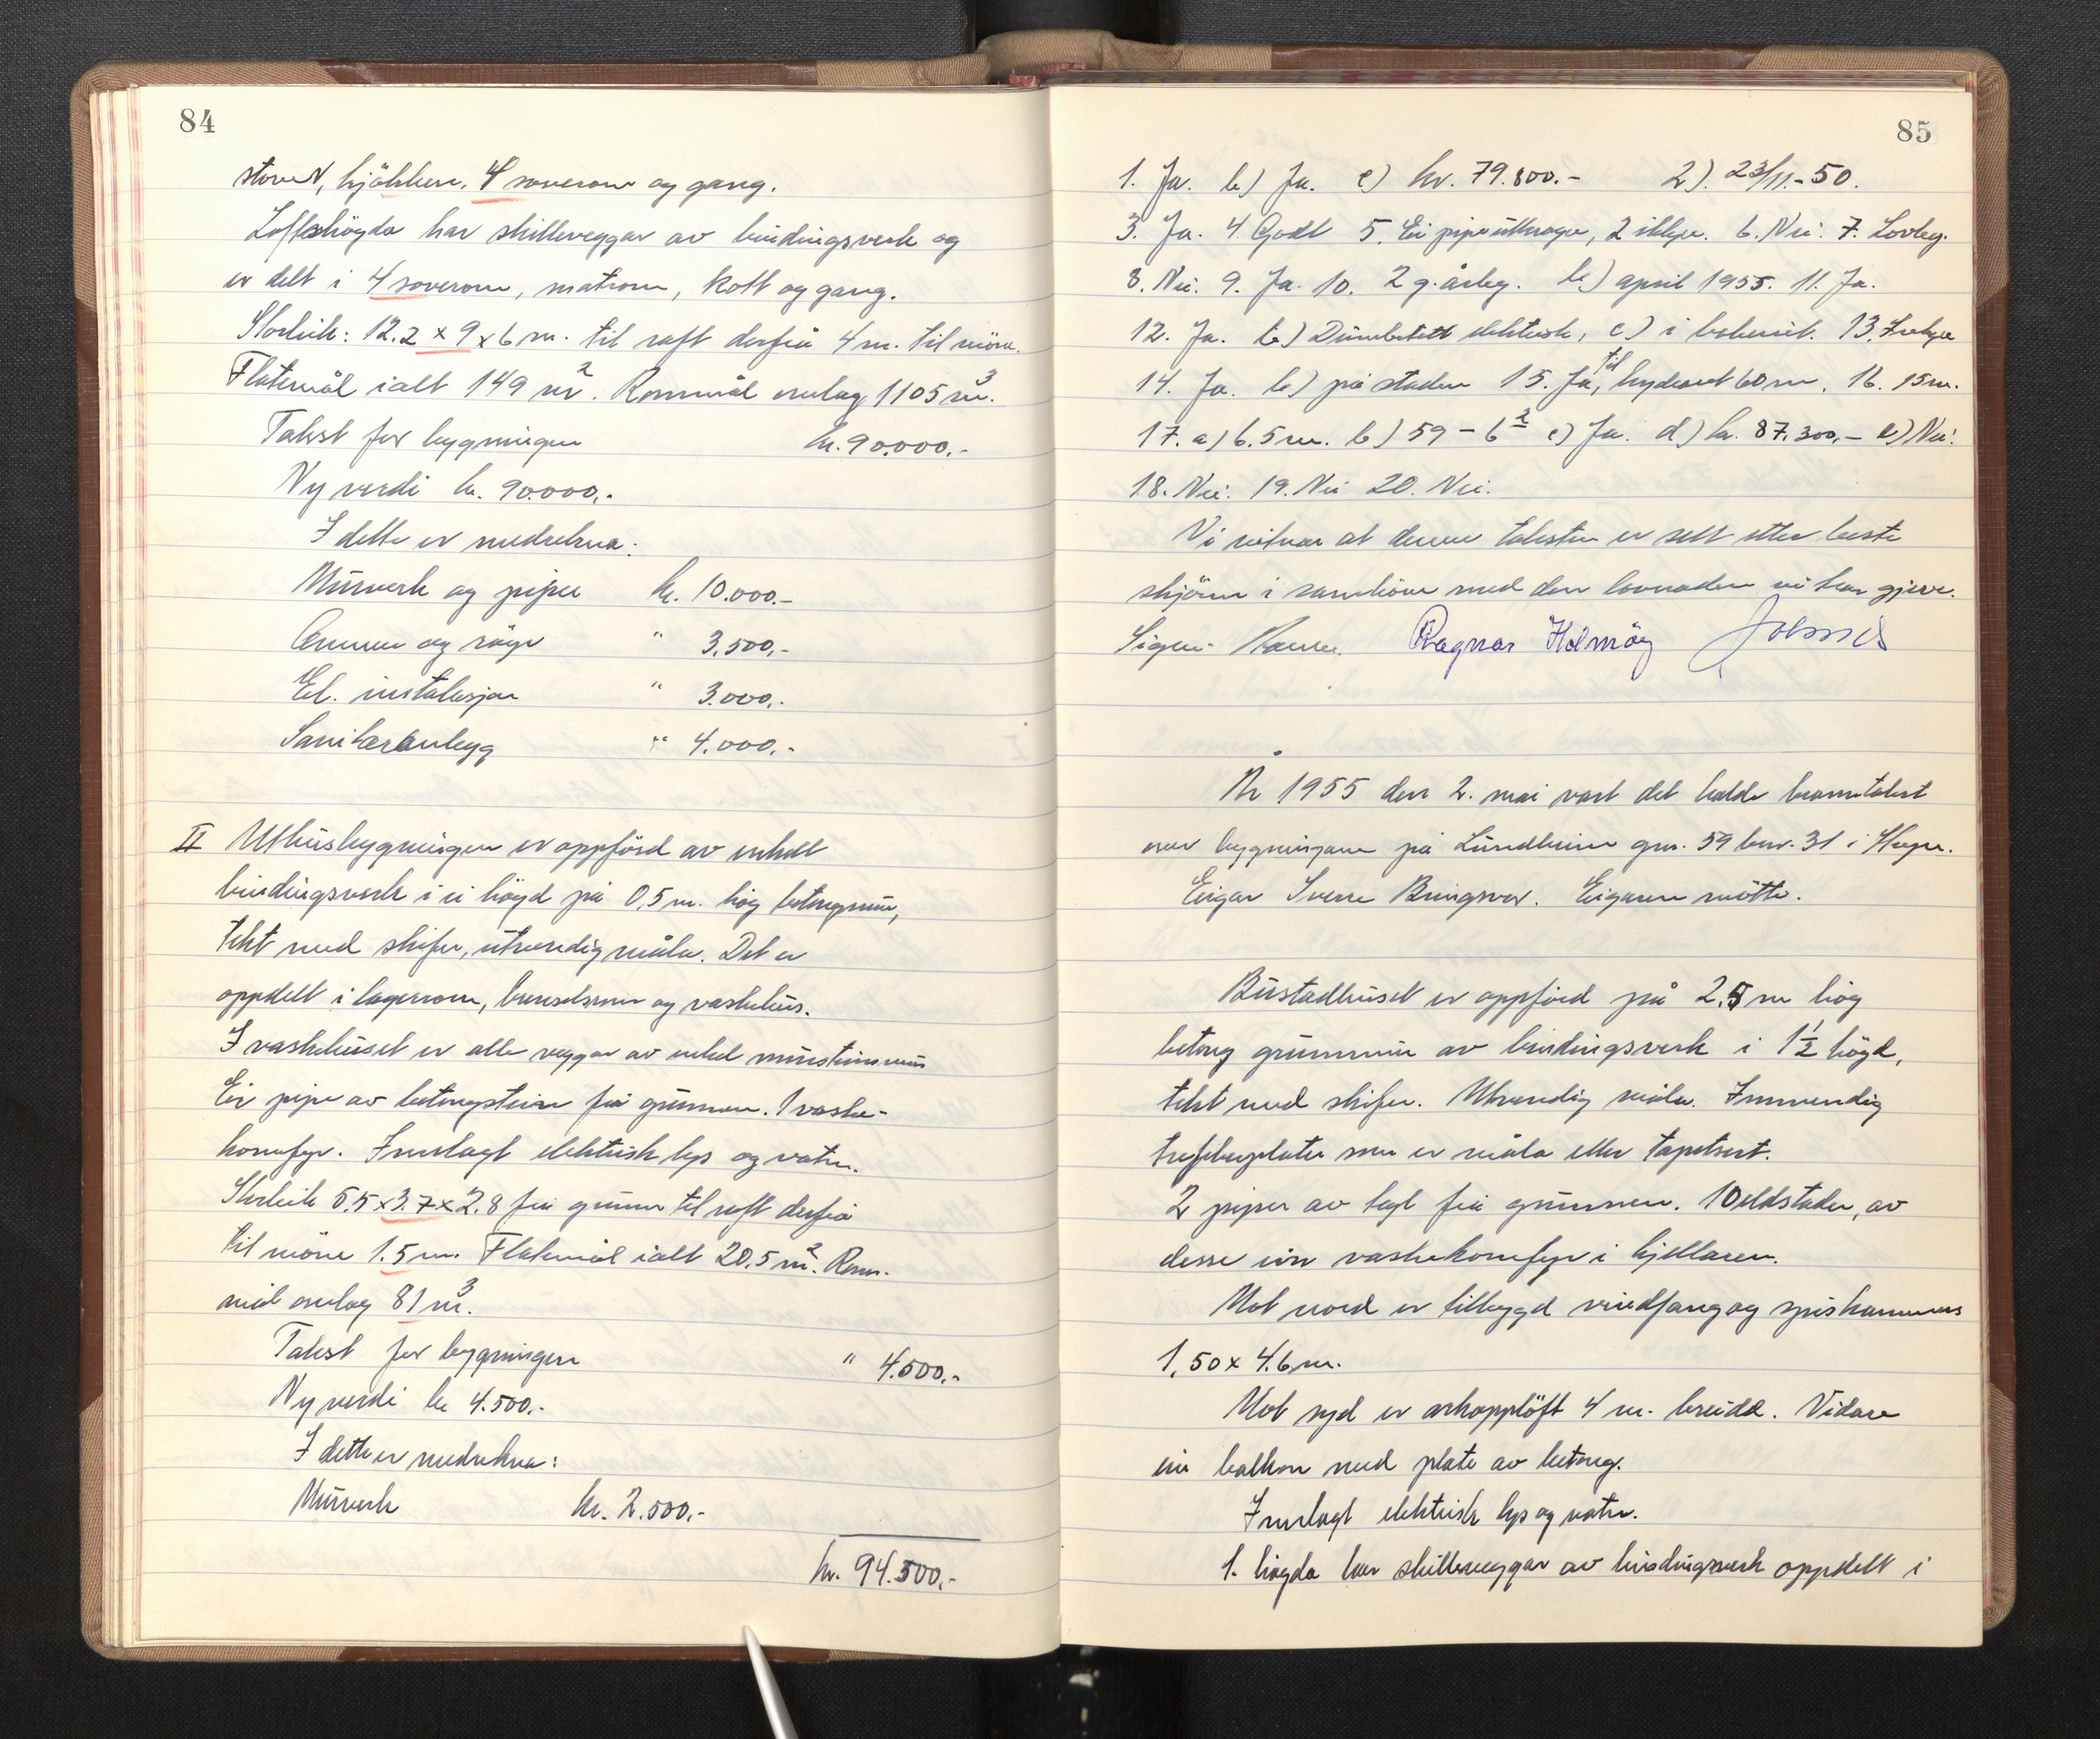 84
stover, kjökken, 4 soverom og gang.
Loftshögda har skilleveggar av bindingsverk og
er delt i 4 soverom, matrom, kott og gang.
Storleik: 12.2 x 9 x 6 m. til raft derfrå 4 m. til möne.
Flatemål ialt 149 m². Rommål omlag 1105 m³.
Takst for bygningen kr. 90.000.-
Ny verdi kr. 90.000.-
I dette er medrekna:
Murverk og piper kr. 10.000.-
Omnar og " 3.500,-
El. instalasjon " 3.000,-
Sanitæranlegg " 4.000,-
II Uthusbygningen er oppförd av enkelt
bindingsverk i ei högd på 0,5 m. hög betongmur,
tekt med skifer, utvendig måla. Det er
oppdelt i lagerrom, brenselsrom og vaskehus.
I vaskehuset er alle veggar av enkel mursteinsmur
Ein pipe av betongstein frå grunnen. 1 vaske-
komfyr. Innlagt elektrisk lys og vatn.
Storleik 5.5 x 3.7 x 2.8 frå grunn til raft derfrå
til möne 1.5 m. Flatemål ialt 20.5 m². Rom-
mål omlag 81 m³.
Takst for bygningen " 4.500.-
Ny verdi kr 4.500.-
I dette er medrekna:
Murverk kr. 2.500.-
kr. 94.500.-
85
1. Ja. b) Ja. c) kr. 79.800.- 2). 23/11.-50.
3. Ja. 4. Godt 5. Ei pipe utkraga, 2 ikkje. 6. Nei. 7. Lovleg.
8. Nei. 9. Ja. 10. 2 g. årleg. b.) april 1955. 11. Ja.
12. Ja. b) elektrisk, c) i 13. Ikkje
14. Ja. b) på staden 15. Ja, til hydrant 60 m. 16. 15 m.
17. a) 6.5 m. b) 59 - 6² c) Ja. d) kr. 87.300,- e) Nei.
18. Nei. 19. Nei 20. Nei.
Vi vitnar at denne taksten er sett etter beste
skjönn i samhöve med den lovnaden vi har gjeve.
Ragnar Holmöy
År 1955 den 2. mai vart det halde branntakst
over bygningane på Lundheim gnr. 59 bnr. 31 i
Eigar Sverre Bringsvor. Eigaren mötte.
Bustadhuset er oppförd på 2,5 m hög
betong grunnmur av bindingsverk i 1½ högd,
tekt med skifer. Utvendig måla. Innvendig
trefiberplater som er måla eller tapetsert.
2 piper av tegl frå grunnen. 10 eldstader, av
desse ein vaskekomfyr i kjellaren.
Mot nord er tilbygd vindfang og spiskammers
1,50 x 4.6 m.
Mot syd er arkopplöft 4 m. breidd. Vidare
ein balkon med plate av betong.
Innlagt elektrisk lys og vatn.
1. högda har skilleveggar av bindingsverk oppdelt i